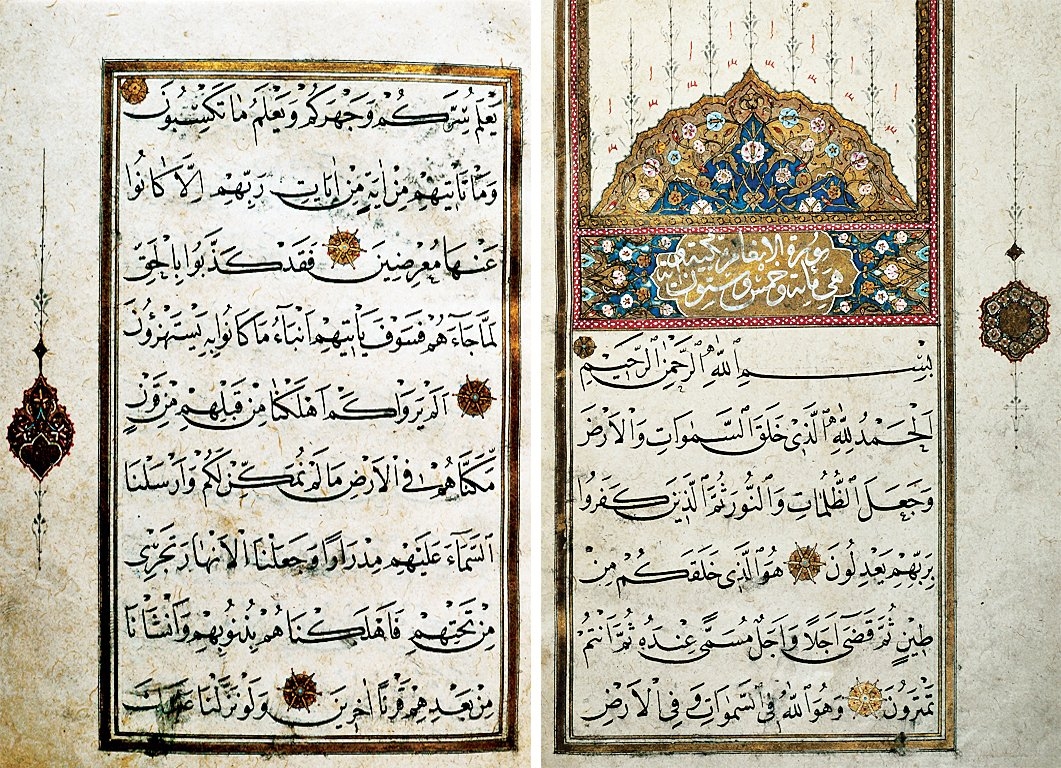 سورة الانعام مكية
وهي مائة وخمس وستون اية
بِسْمِ اللّٰهِ الرَّحْمٰنِ الرَّحِيمِ
اَلْحَمْدُ لِلّٰهِ الَّذِى خَلَقَ السَّمٰوَاتِ وَالْاَرْضَ
وَجَعَلَ الظُّلُمَاتِ وَالنُّورَ ثُمَّ الَّذِينَ كَفَرُوا
بِرَبِّهِمْ يَعْدِلُونَ هُوَ الَّذِى خَلَقَكُمْ مِنْ
طِينٍ ثُمَّ قَضَىٰ اَجَلًا وَاَجَلٌ مُسَمًّى عِنْدَهُ ثُمَّ اَنْتُمْ
تَمْتَرُونَ وَهُوَ اللّٰهُ فِى السَّمٰوَاتِ وَفِى الْاَرْضِ
يَعْلَمُ سِرَّكُمْ وَجَهْرَكُمْ وَيَعْلَمُ مَا تَكْسِبُونَ
وَمَا تَاْتِيهِمْ مِنْ اٰيَةٍ مِنْ اٰيَاتِ رَبِّهِمْ اِلَّا كَانُوا
عَنْهَا مُعْرِضِينَ فَقَدْ كَذَّبُوا بِالْحَقِّ
لَمَّا جَاۤءَهُمْ فَسَوْفَ يَاْتِيهِمْ اَنْبَاۤءُ مَا كَانُوا بِهِ يَسْتَهْزِؤُنَ
اَلَمْ يَرَوْا كَمْ اَهْلَكْنَا مِنْ قَبْلِهِمْ مِنْ قَرْنٍ
مَكَّنَّاهُمْ فِى الْاَرْضِ مَا لَمْ نُمَكِّنْ لَكُمْ وَاَرْسَلْنَا
السَّمَاۤءَ عَلَيْهِمْ مِدْرَارًا وَجَعَلْنَا الْاَنْهَارَ تَجْرِى
مِنْ تَحْتِهِمْ فَاَهْلَكْنَاهُمْ بِذُنُوبِهِمْ وَاَنْشَاْنَا
مِنْ بَعْدِهِمْ قَرْنًا اٰخَرِينَ وَلَوْ نَزَّلْنَا عَلَيْكَ